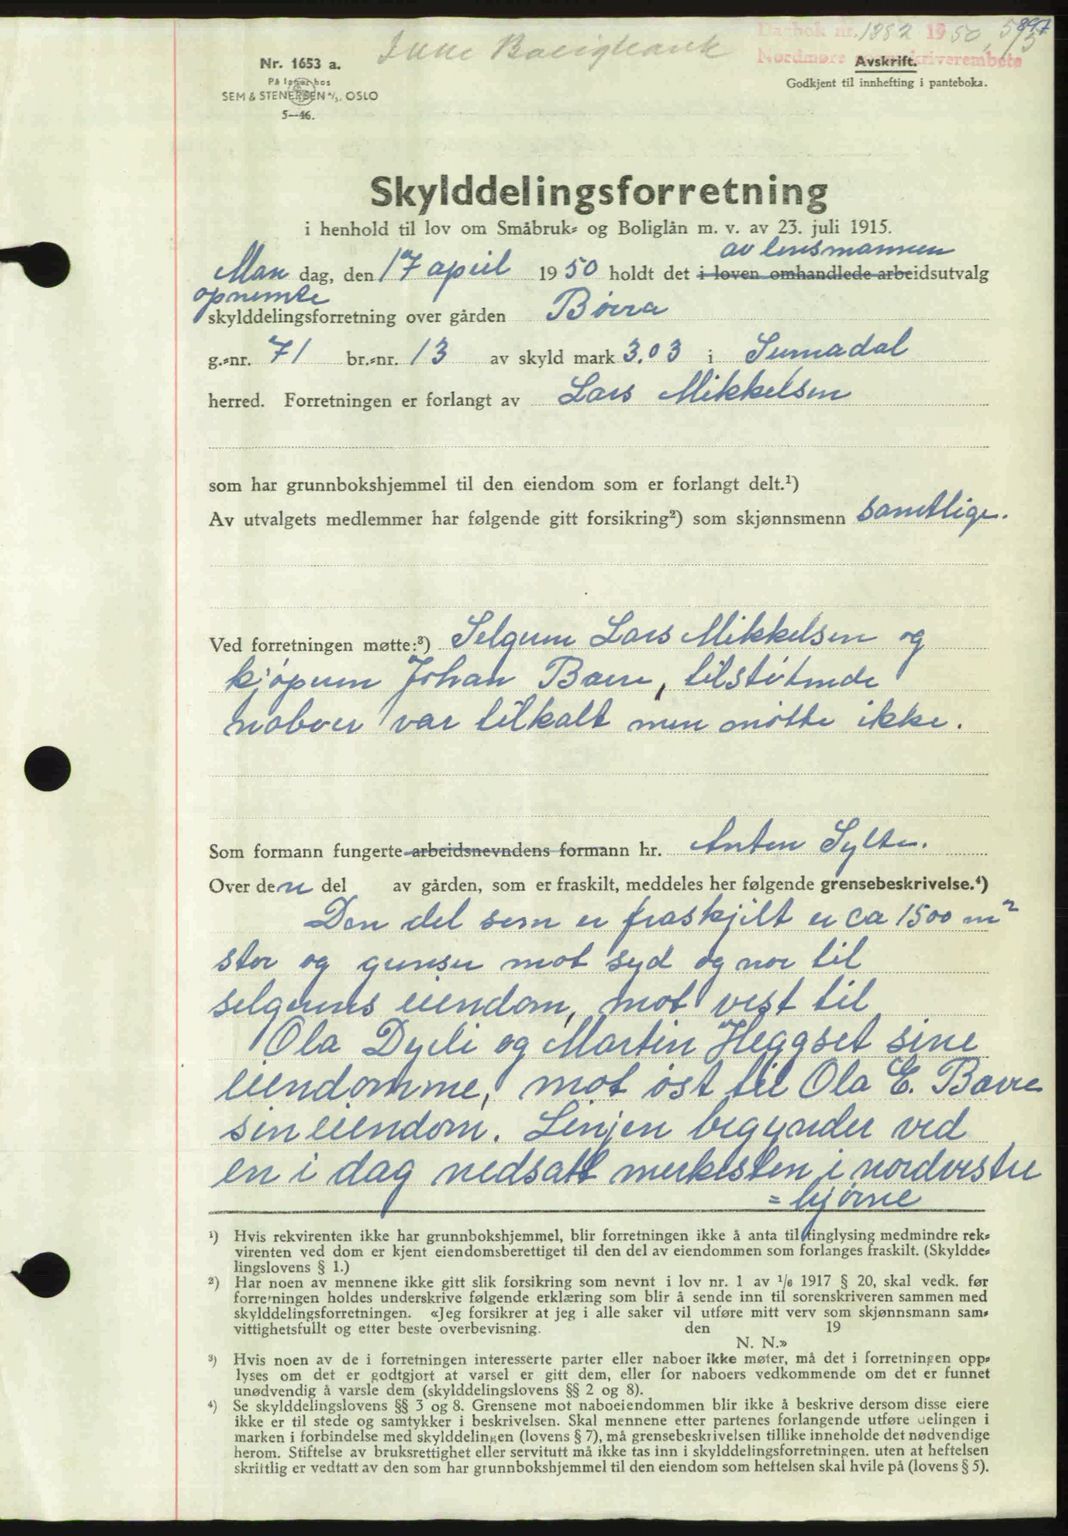 897
Dagbok nr. 1352 1950, 5/5
Nordmøre sorenskriverembete
Nr. 1653 a.
På lager hos
SEM & STENERSEN A/S. OSLO
5—46.
Avskrift.
Godkjent til innhefting i panteboka.
Skylddelingsforretning
i henhold til lov om Småbruk- og Boliglån m. v. av 23. juli 1915.
av lensmannen
Man dag, den 17 april 1950 holdt det i loven omhandlede arbeidsutvalg
opnemte
skylddelingsforretning over gården
g.-nr. 71 br.-nr. 13 av skyld mark 3.03 i Surnadal
herred. Forretningen er forlangt av Lars Mikkelsen
som har grunnbokshjemmel til den eiendom som er forlangt delt.¹)
Av utvalgets medlemmer har følgende gitt forsikring²) som skjønnsmenn samtlige.
Ved forretningen møtte:³) Selgeren Lars Mikkelsen og
kjøperen Johan Bæve, tilstøtende
naboer var tilkalt men møtte ikke.
Som formann fungerte arbeidsnevndens formann hr. Anton Sylte.
Over den del av gården, som er fraskilt, meddeles her følgende grensebeskrivelse.⁴)
Den del som er fraskjilt er ca 1500 m²
stor og grenser mot syd og nor til
selgerens eiendom, mot vest til
Ola Dyrli og Martin Heggset sine
eiendomme, mot øst til Ola E. Bævre
sin eiendom. Linjen begynder ved
en i dag nedsatt merkesten i nordvestre
= hjørne
¹) Hvis rekvirenten ikke har grunnbokshjemmel, blir forretningen ikke å anta til tinglysing medmindre rek-
virenten ved dom er kjent eiendomsberettiget til den del av eiendommen som forlanges fraskilt. (Skyldde-
lingslovens § 1.)
²) Har noen av mennene ikke gitt slik forsikring som nevnt i lov nr. 1 av 1/6 1917 § 20, skal vedk. før
forretningen holdes underskrive følgende erklæring som blir å sende inn til sorenskriveren sammen med
skylddelingsforretningen. «Jeg forsikrer at jeg i alle saker vil utføre mitt verv som skjønnsmann sam-
vittighetsfullt og etter beste overbevisning. den 19
N. N.»
³) Hvis noen av de i forretningen interesserte parter eller naboer ikke møter, må det i forretningen opp-
lyses om det er godtgjort at varsel er gitt dem, eller for naboers vedkommende om det er funnet
unødvendig å varsle dem (skylddelingslovens §§ 2 og 8).
⁴) Se skylddelingslovens §§ 3 og 8. Grensene mot naboeiendommen blir ikke å beskrive dersom disse eiere
ikke er til stede og samtykker i beskrivelsen. Skal mennene etter partenes forlangende utføre delingen i
marken i forbindelse med skylddelingen (lovens § 7), må grensebeskrivelsen tillike inneholde det nødvendige
herom. Stiftelse av bruksrettighet eller servitutt må ikke tas inn i skylddelingsforretningen, uten at heftelsen
skriftlig er vedtatt av den som har grunnbokshjemmel til den eiendom som heftelsen skal hvile på (lovens § 5).